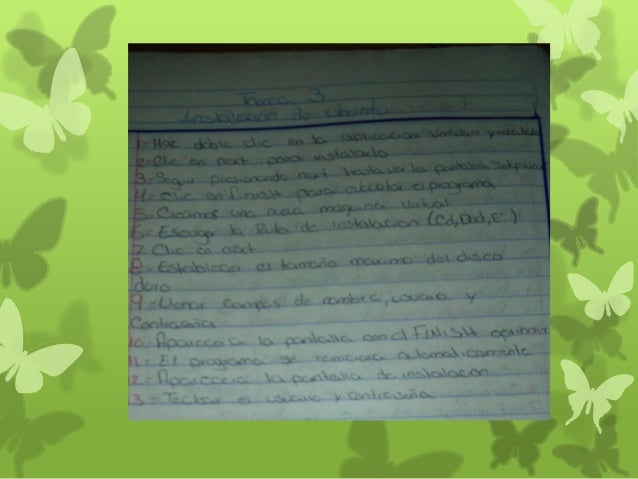 Tarea 3
Instalacion de Ubuntu
1= Hac doble clic en la aplicacion
2= Clic en next para instalarlo
3= Seguir presionando next hasta ver la pantalla
4= Clic en finish para el programa
5. Creamos una nueva maquina virtual
6= Escoger la Ruta de instalacion (Cd, Dvd, Etc)
7. Clic en next
8= Establecer el tamaño maximo del disco
duro
9= Llenar campos de nombre, usuario y
Contraseña
10. Aparecera la pantalla con el FINISH oprimir
11= El programa se reiniciara automaticamente
12= Aparecera la pantalla de instalacion
13= Teclear el usuario y contraseña